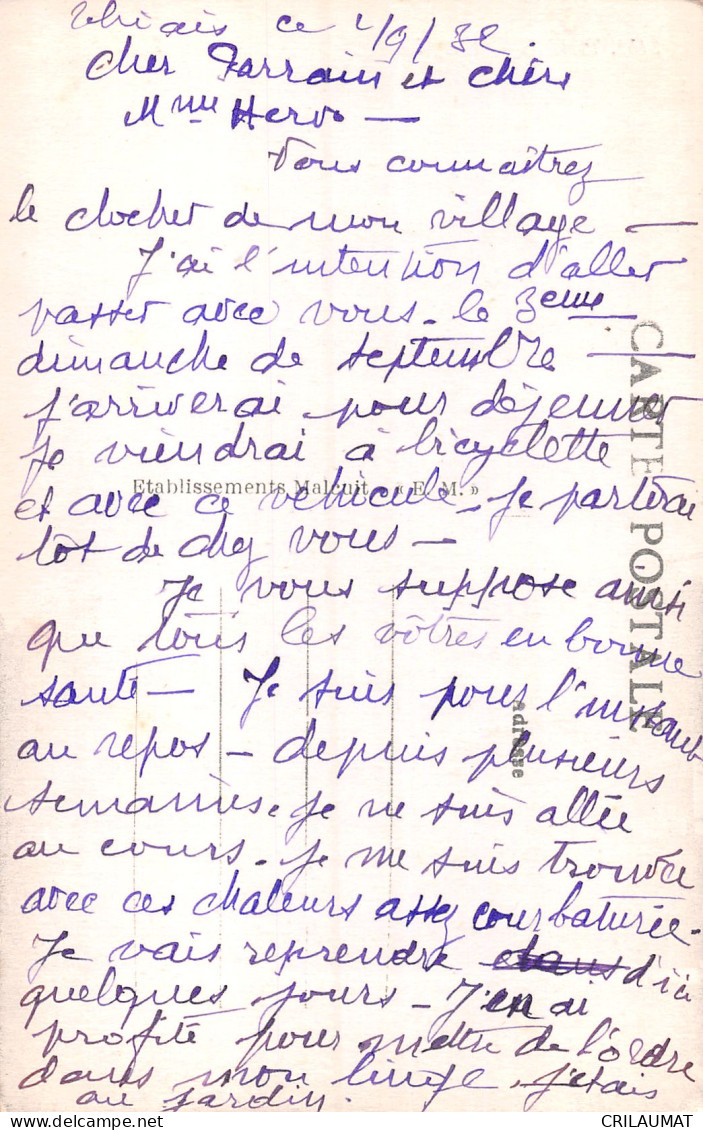 Thiais ce 1/9/32
Cher Parrain et chère
Mme Hervo —
Vous connaîtrez
le clocher de mon village —
J'ai l'intention d'aller
passer avec vous le 3eme
dimanche de septembre —
j'arriverai pour déjeuner
je viendrai à bicyclette
et avec ce véhicule je partirai
tôt de chez vous —
Je vous suppose ainsi
que tous les vôtres en bonne
santé — Je suis pour l'instant
au repos — depuis plusieurs
semaines. je ne suis allée
au cours. je me suis trouvée
avec ces chaleurs assez courbaturée.
Je vais reprendre d'ici
quelques jours — J'en ai
profité pour mettre de l'ordre
dans mon linge, j'étais
au jardin.
CARTE POSTALE
Etablissements Malcuit « E. M. »
Adresse
CRILAUMAT